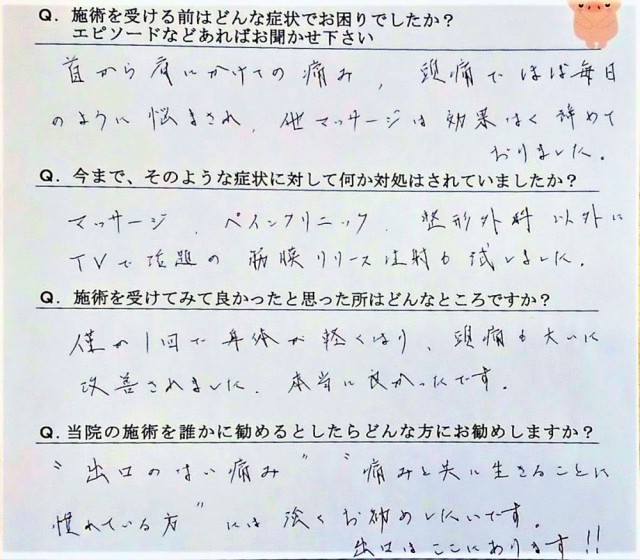 Q. 施術を受ける前はどんな症状でお困りでしたか？
エピソードなどあればお聞かせ下さい
首から肩にかけての痛み、頭痛でほぼ毎日
のように悩まされ、他マッサージは効果なく諦めて
おりました。
Q. 今まで、そのような症状に対して何か対処はされていましたか？
マッサージ、ペインクリニック、整形外科以外に
TVで話題の筋膜リリース注射も試しました。
Q. 施術を受けてみて良かったと思った所はどんなところですか？
僅か1回で身体が軽くなり、頭痛も大いに
改善されました。本当に良かったです。
Q. 当院の施術を誰かに勧めるとしたらどんな方にお勧めしますか？
"出口のない痛み" "痛みと共に生きることに
慣れている方"には強くお勧めしたいです。
出口はここにあります!!